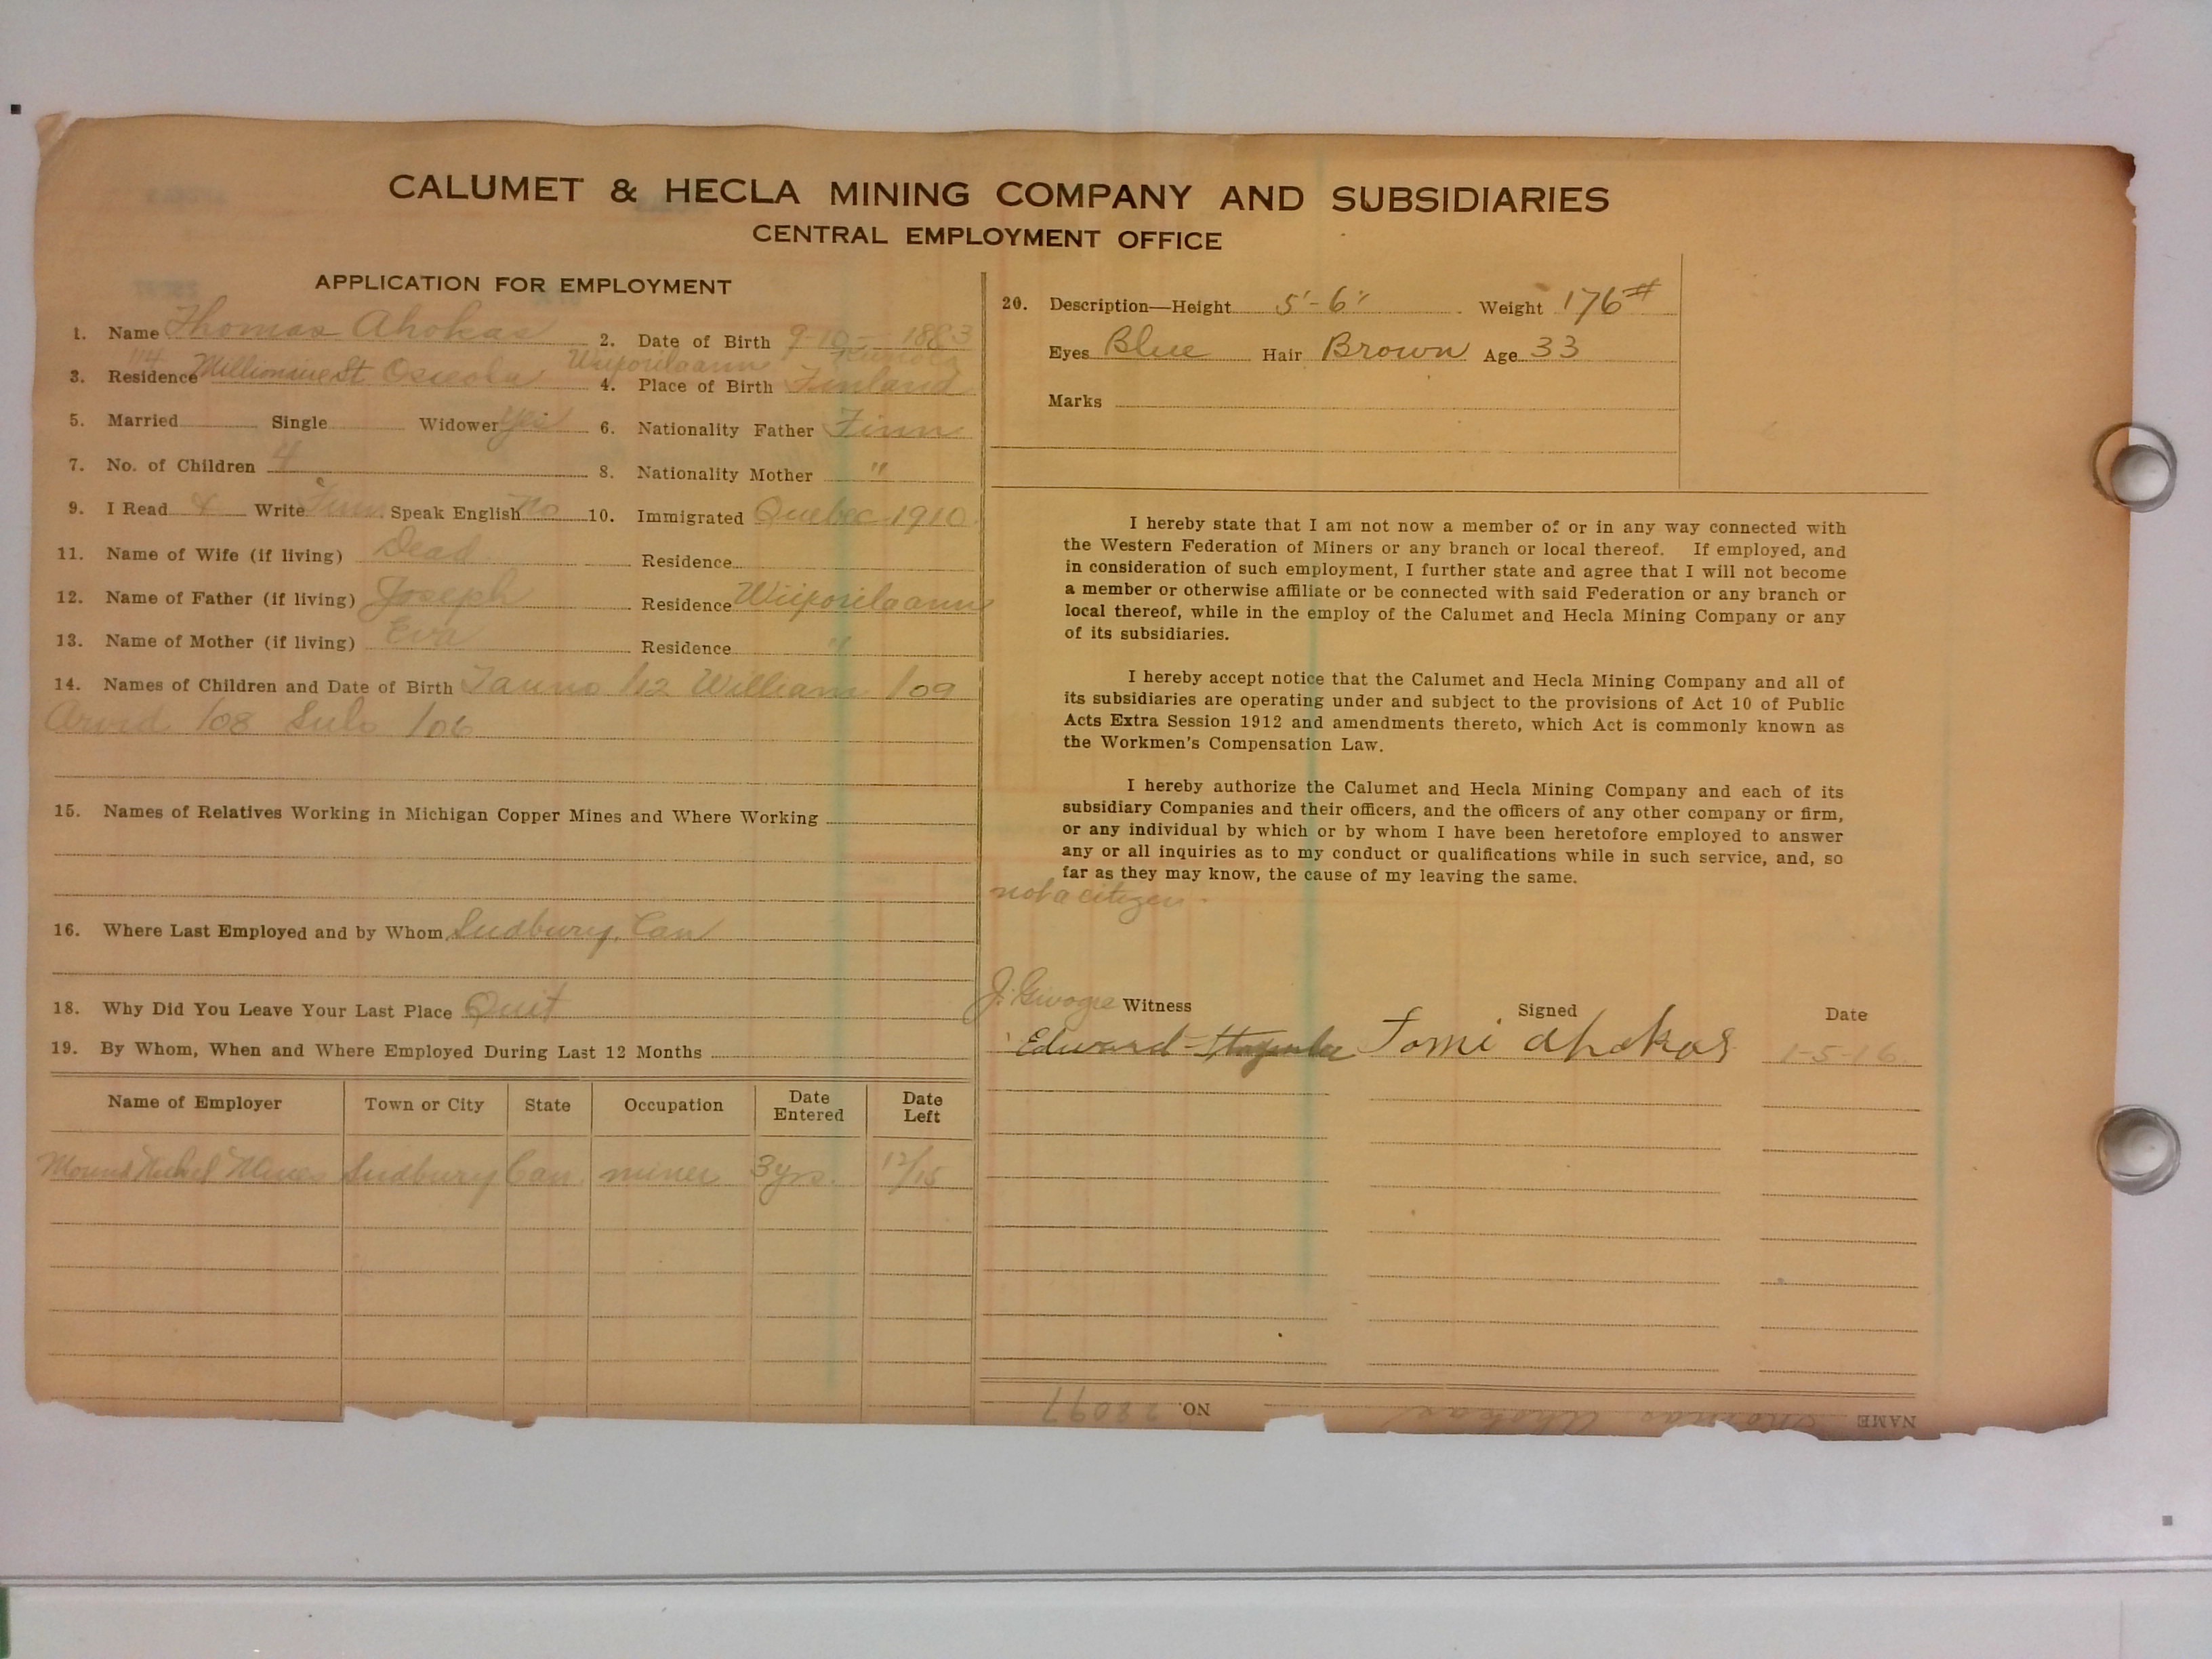 CALUMET & HECLA MINING COMPANY AND SUBSIDIARIES
CENTRAL EMPLOYMENT OFFICE
APPLICATION FOR EMPLOYMENT
1. Name Thomas Ahokas 2. Date of Birth 9-10- 1883
114 Wiipurilaann
3. Residence Millionaire St Osceola 4. Place of Birth Finland
5. Married Single Widower yes 6. Nationality Father Finn
7. No. of Children 4 8. Nationality Mother "
9. I Read & Write Finn Speak English No 10. Immigrated Quebec-1910
11. Name of Wife (if living) Dead Residence
12. Name of Father (if living) Joseph Residence Wiipurilaann
13. Name of Mother (if living) Eva Residence "
14. Names of Children and Date of Birth Tauno /12 William /09
Arvid /08 Sulo /06
15. Names of Relatives Working in Michigan Copper Mines and Where Working
16. Where Last Employed and by Whom Sudbury, Can
18. Why Did You Leave Your Last Place Quit
19. By Whom, When and Where Employed During Last 12 Months
Name of Employer Town or City State Occupation Date Entered Date Left
Mound Nickel Mines Sudbury Can. miner 3 yrs. 12/15
20. Description—Height 5'-6" Weight 176#
Eyes Blue Hair Brown Age 33
Marks
I hereby state that I am not now a member of or in any way connected with
the Western Federation of Miners or any branch or local thereof. If employed, and
in consideration of such employment, I further state and agree that I will not become
a member or otherwise affiliate or be connected with said Federation or any branch or
local thereof, while in the employ of the Calumet and Hecla Mining Company or any
of its subsidiaries.
I hereby accept notice that the Calumet and Hecla Mining Company and all of
its subsidiaries are operating under and subject to the provisions of Act 10 of Public
Acts Extra Session 1912 and amendments thereto, which Act is commonly known as
the Workmen's Compensation Law.
I hereby authorize the Calumet and Hecla Mining Company and each of its
subsidiary Companies and their officers, and the officers of any other company or firm,
or any individual by which or by whom I have been heretofore employed to answer
any or all inquiries as to my conduct or qualifications while in such service, and, so
far as they may know, the cause of my leaving the same.
not a citizen.
J. Witness Signed Date
Edward Tomi Ahokas 1-5-16.
NAME Thomas Ahokas NO. 28097